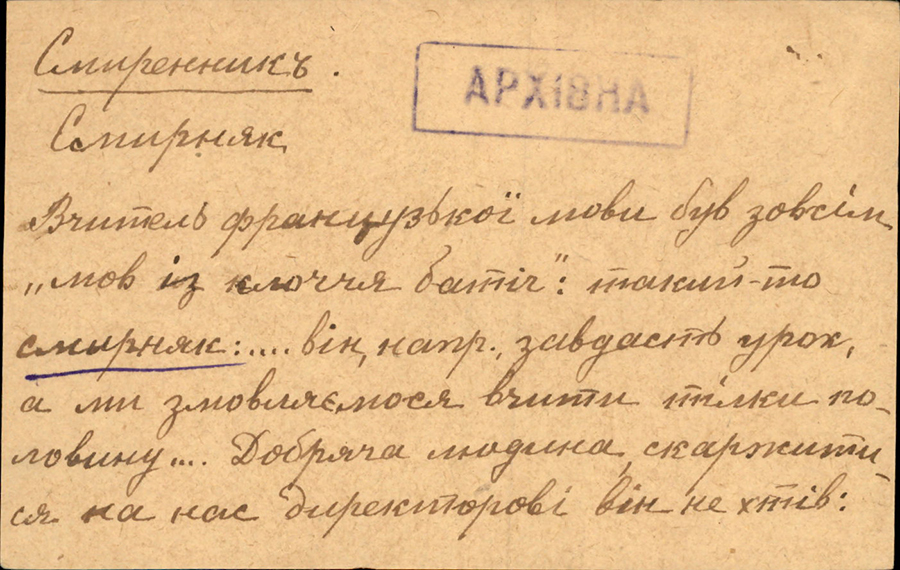 Смиренникъ.
АРХІВНА
Смирняк
Вчитель французької мови був зовсім
„мов із клоччя батіг": такий-то
смирняк:.... він, напр., завдасть урок,
а ми змовляємося вчити тілки по-
ловину.... Добряча людина, скаржити-
ся на нас директорові він не хтів: